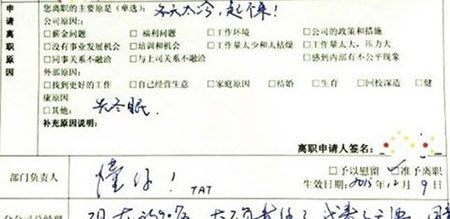 申请离职原因
您离职的主要原是(单选): 冬天太冷,起不来!
公司原因:
□薪金问题 □福利问题 □工作环境 □公司的政策和措施
□没有事业发展机会 □培训和机会 □工作量太少和太枯燥 □工作量太大,压力大
□同事关系不融洽 □与上司关系不融洽 □感到内部有不公平现象
外部原因:
□找到更好的工作 □自己经营生意 □家庭原因 □结婚 □生育 □回校深造 □健
康原因
□其他: 去冬眠.
补充原因说明:
离职申请人签名:
部门负责人 懂你! TAT
□予以慰留 ☑准予离职
生效日期: 2015年12月9日